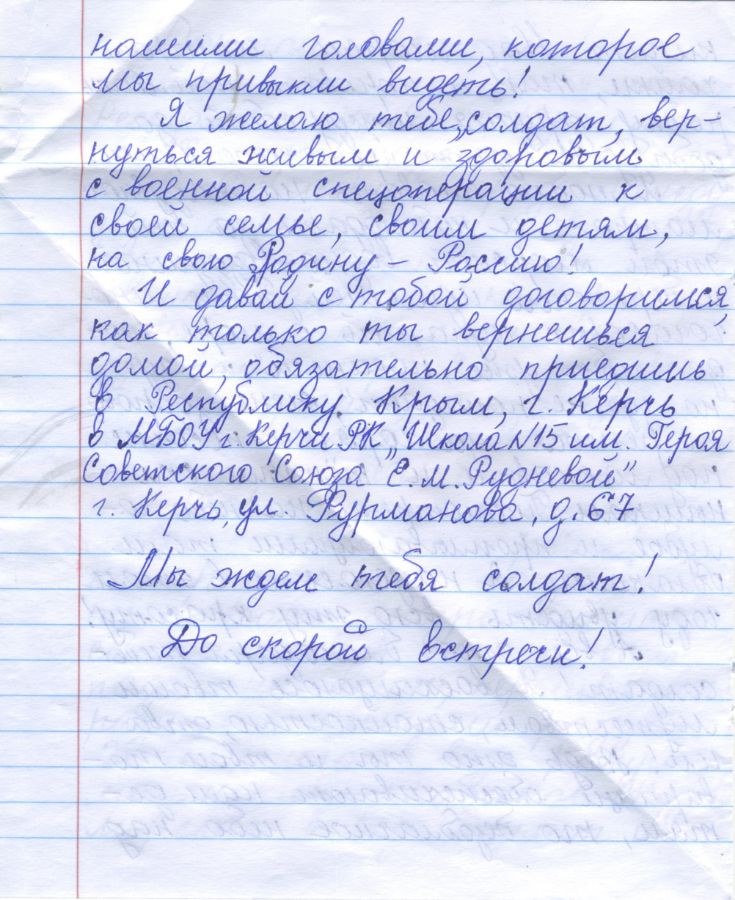 нашими головами, которое
мы привыкли видеть!
Я желаю тебе, солдат, вер-
нуться живым и здоровым
с военной спецоперации к
своей семье, своим детям,
на свою Родину – Россию!
И давай с тобой договоримся,
как только ты вернешься
домой, обязательно приедишь
в Республику Крым, г. Керчь
в МБОУ г. Керчи РК „Школа N15 им. Героя
Советского Союза Е.М. Рудневой"
г. Керчь, ул. Фурманова, д. 67
Мы ждем тебя солдат!
До скорой встречи!